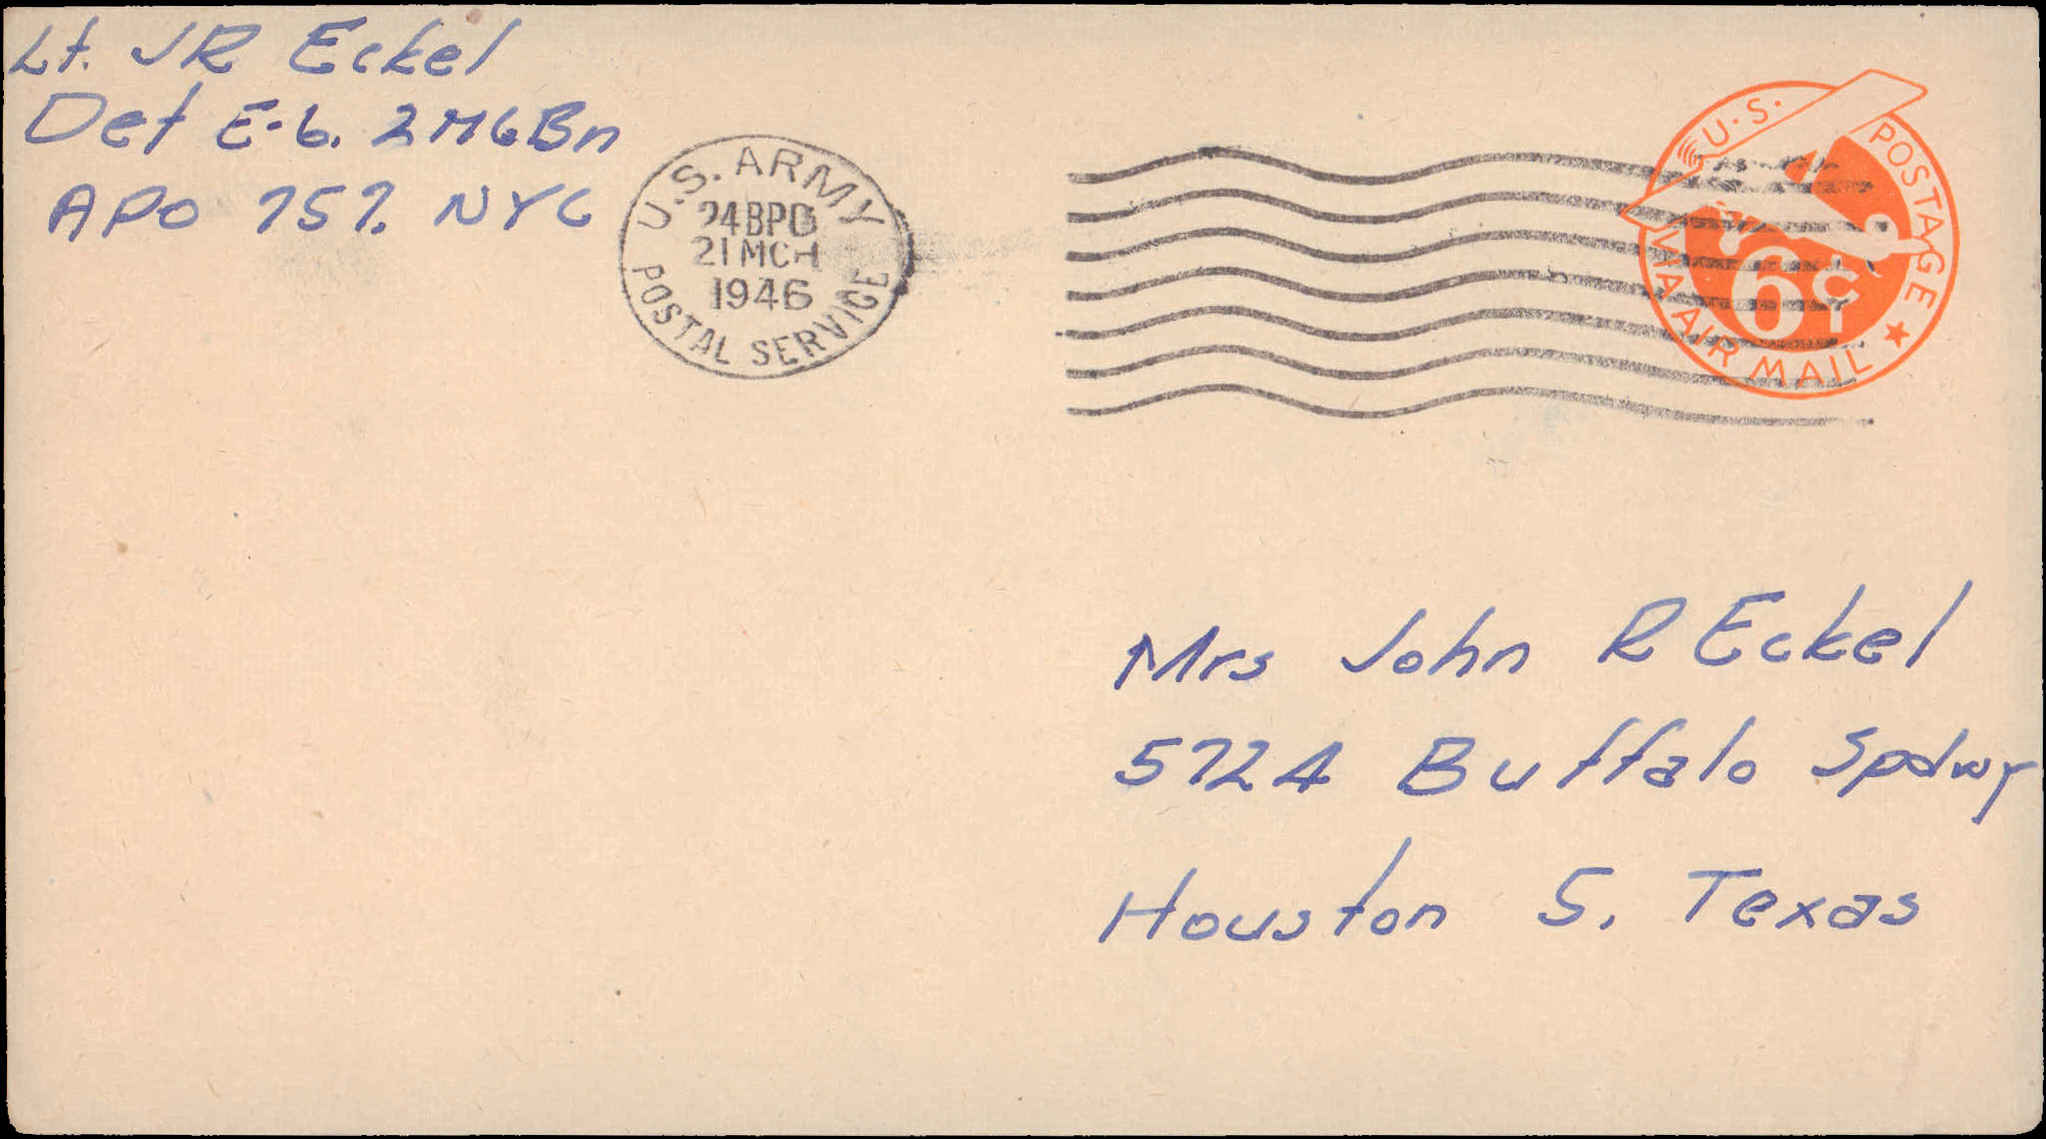 Lt. JR Eckel
Det E-6. 2 MG Bn
APO 757. NYC
U.S. ARMY
24 BPO
21 MCH
1946
POSTAL SERVICE
U.S. POSTAGE
6¢
VIA AIR MAIL
Mrs John R Eckel
5724 Buffalo Spdwy
Houston 5. Texas